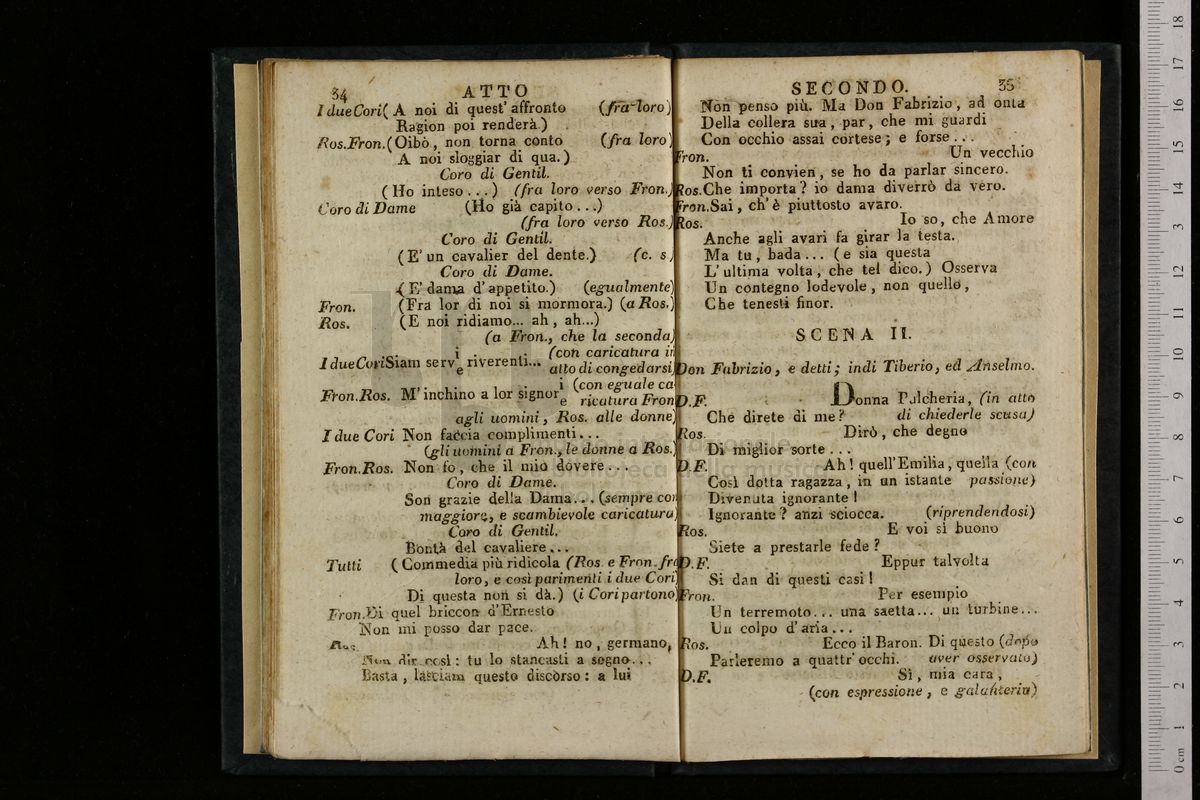 34 ATTO
I due Cori ( A noi di quest' affronto (fra loro)
Ragion poi renderà.)
Ros. Fron. (Oibò, non torna conto (fra loro)
A noi sloggiar di qua.)
Coro di Gentil.
( Ho inteso...) (fra loro verso Fron.)
Coro di Dame (Ho già capito...)
(fra loro verso Ros.)
Coro di Gentil.
(E' un cavalier del dente.) (c. s.)
Coro di Dame.
(E' dama d'appetito.) (egualmente)
Fron. (Fra lor di noi si mormora.) (a Ros.)
Ros. (E noi ridiamo... ah, ah...)
(a Fron., che la seconda)
I due Cori Siam servi/e riverenti... (con caricatura in
atto di congedarsi)
Fron. Ros. M'inchino a lor signori/e (con eguale ca-
ricatura Fron.
agli uomini, Ros. alle donne)
I due Cori Non faccia complimenti...
(gli uomini a Fron., le donne a Ros.)
Fron. Ros. Non fo, che il mio dovere...
Coro di Dame.
Son grazie della Dama... (sempre con
maggiore, e scambievole caricatura)
Coro di Gentil.
Bontà del cavaliere...
Tutti ( Commedia più ridicola (Ros. e Fron. fra
loro, e così parimenti i due Cori)
Di questa non si dà.) (i Cori partono)
Fron. Di quel briccon d'Ernesto
Non mi posso dar pace.
Ros. Ah! no, germano,
Non dir così: tu lo stancasti a segno...
Basta, lasciam questo discorso: a lui
SECONDO. 35
Non penso più. Ma Don Fabrizio, ad onta
Della collera sua, par, che mi guardi
Con occhio assai cortese; e forse...
Fron. Un vecchio
Non ti convien, se ho da parlar sincero.
Ros. Che importa? io dama diverrò da vero.
Fron. Sai, ch'è piuttosto avaro.
Ros. Io so, che Amore
Anche agli avari fa girar la testa.
Ma tu, bada... (e sia questa
L'ultima volta, che tel dico.) Osserva
Un contegno lodevole, non quello,
Che tenesti finor.
SCENA II.
Don Fabrizio, e detti; indi Tiberio, ed Anselmo.
D.F. Donna Pulcheria, (in atto
Che direte di me? di chiederle scusa)
Ros. Dirò, che degno
Di miglior sorte...
D.F. Ah! quell'Emilia, quella (con
Così dotta ragazza, in un istante passione)
Divenuta ignorante!
Ignorante? anzi sciocca. (riprendendosi)
Ros. E voi sì buono
Siete a prestarle fede?
D.F. Eppur talvolta
Si dan di questi casi!
Fron. Per esempio
Un terremoto... una saetta... un turbine...
Un colpo d'aria...
Ros. Ecco il Baron. Di questo (dopo
Parleremo a quattr'occhi. aver osservato)
D.F. Sì, mia cara,
(con espressione, e galanteria)